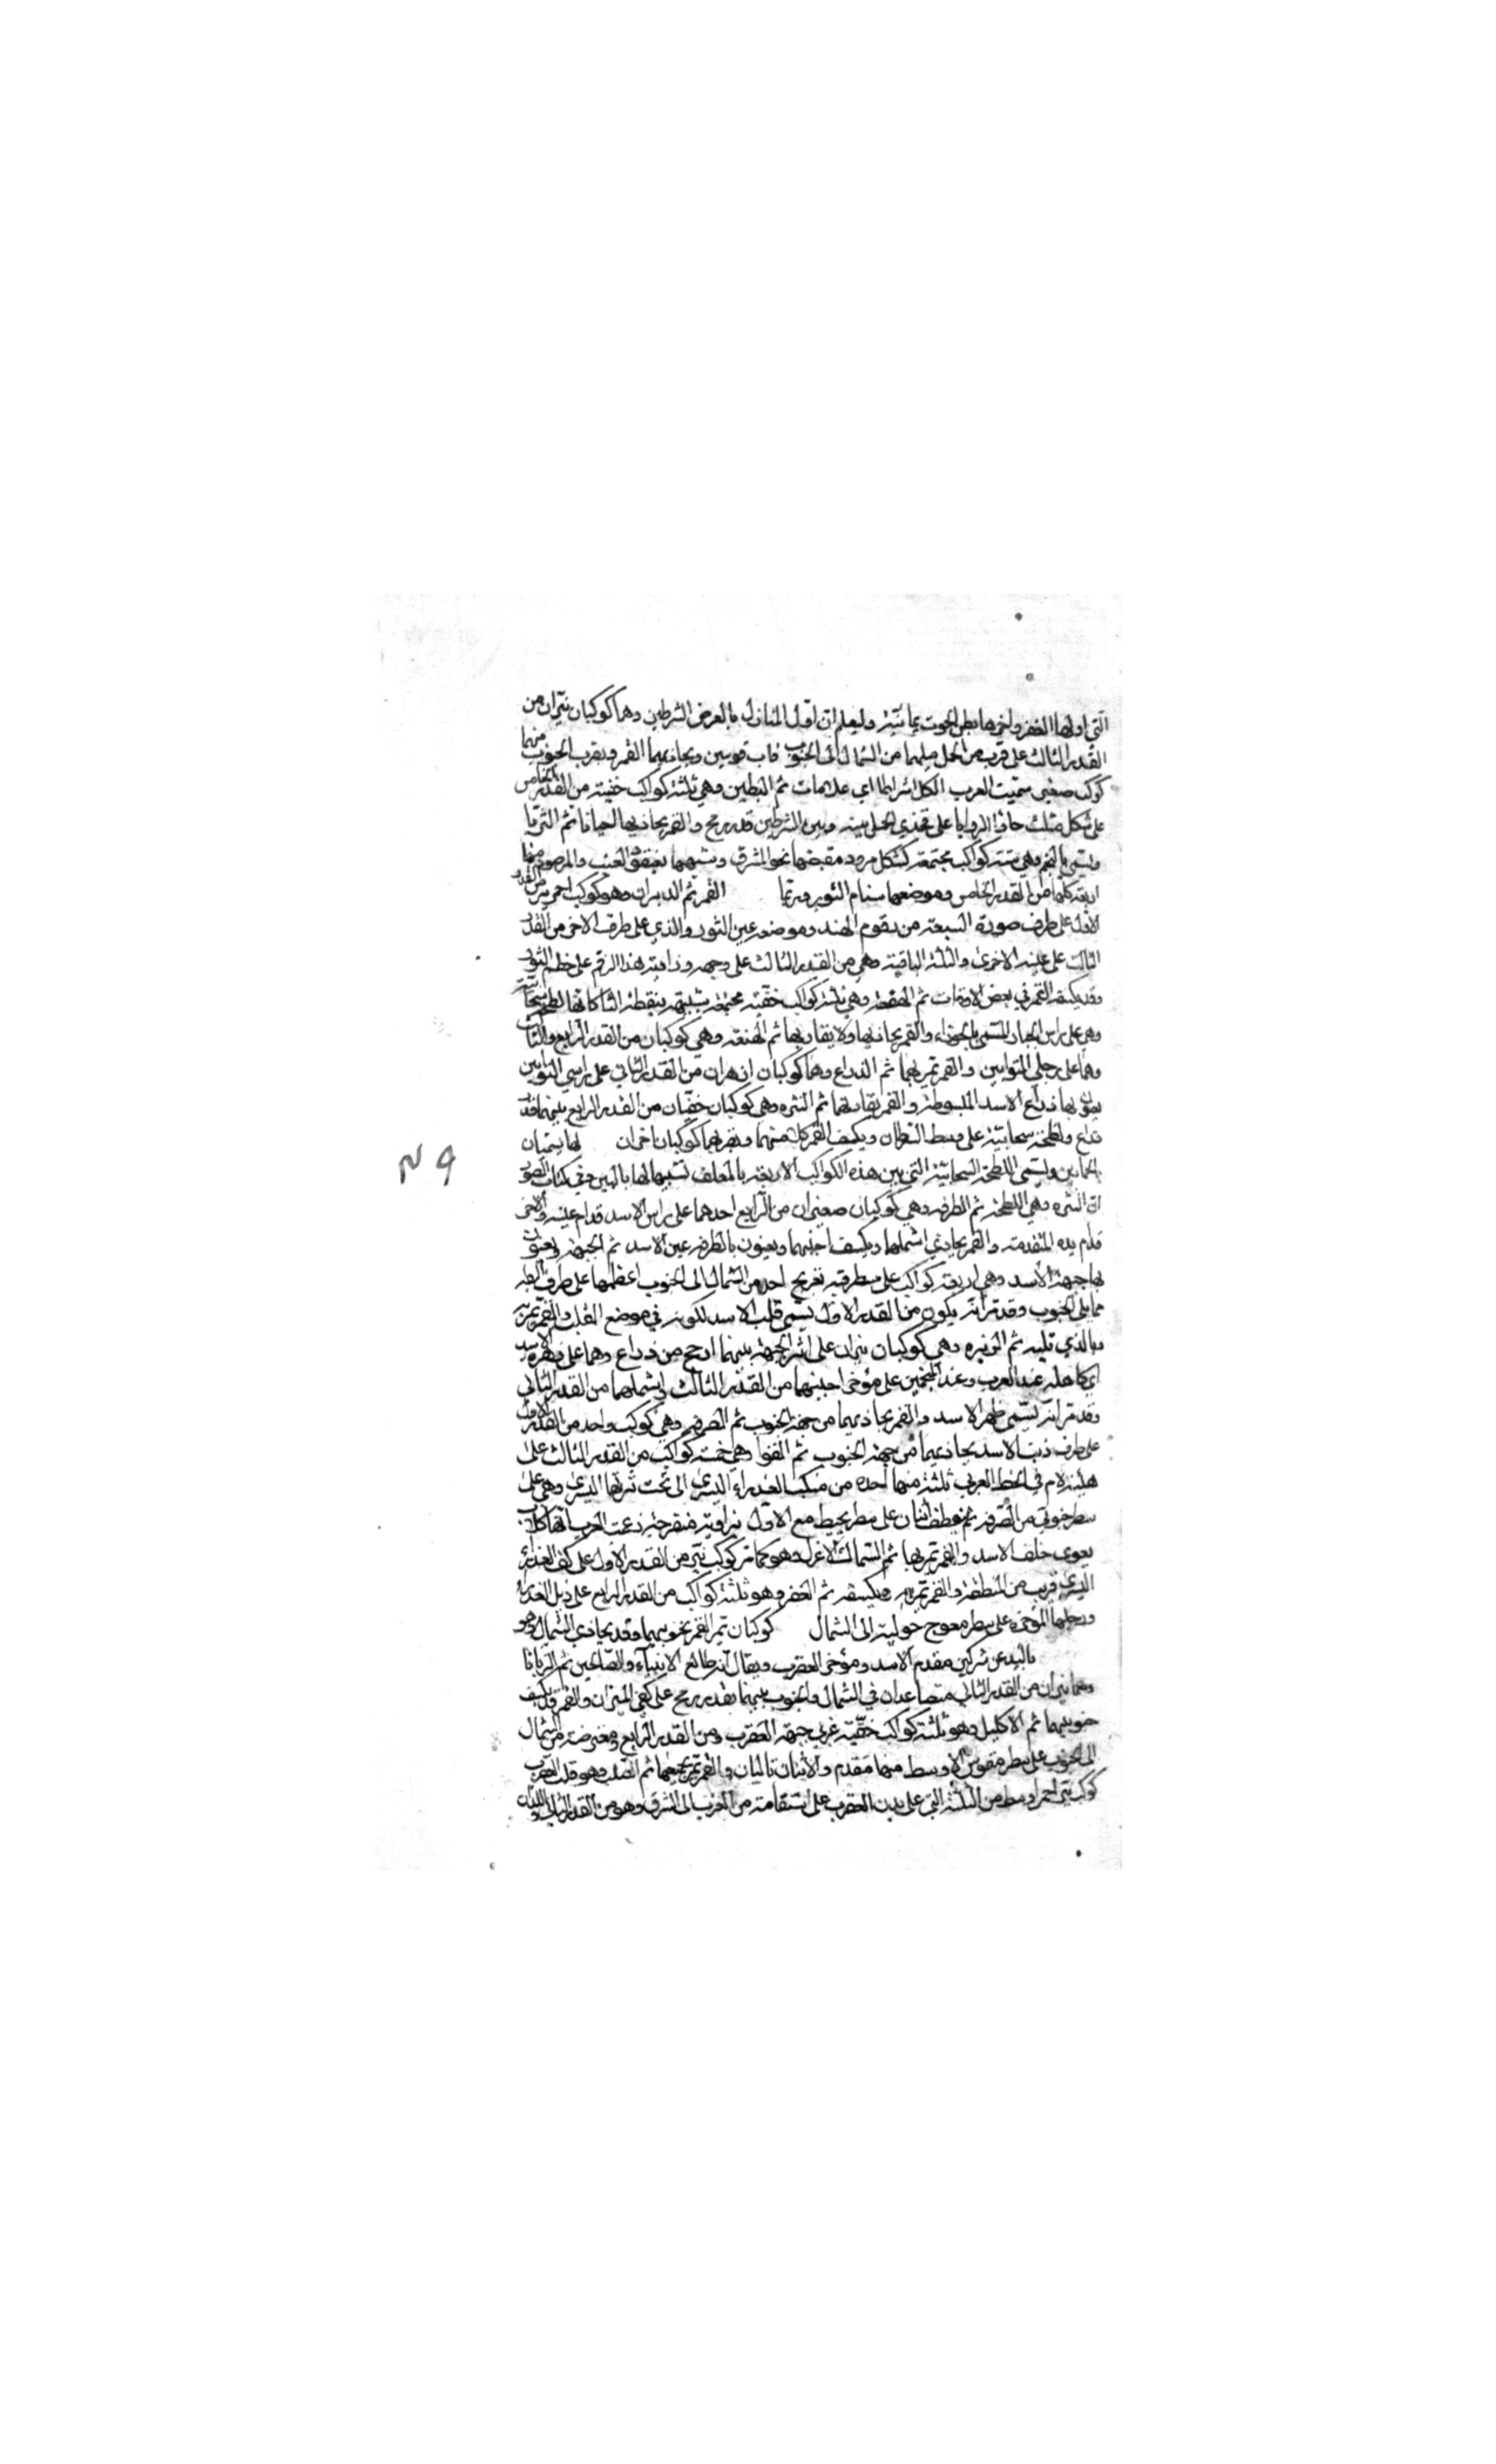 التي اولها الغفر واخرها بطن الحوت يمانية وليعلم ان اول المنازل بالعرض الشرطين وهما كوكبان نيران من
القدر الثالث على قرب من الحمل ميلهما من الشمال الى الجنوب قاب قوسين ويحاذيهما القمر وبقرب الجنوب منهما
كوكب صغير سميت العرب الكل اشراطا اي علامات ثم البطين وهي ثلثة كواكب خفية من القدر الخامس
على شكل مثلث حاد الزوايا على فخذي الحمل بينه وبين الشرطين قدر رمح والقمر يحاذيها احيانا ثم الثريا
وتسمى بالنجم وهي ستة كواكب مجتمعة كشكل مرود مقبضها نحو المشرق وتشبهها بعنقود العنب والمرصود منها
اربعة كلها من القدر الخامس وموضعها سنام الثور وربما القمر ثم الدبران وهو كوكب احمر نير من القدر
الاول على طرف صورة السبعة من رقوم الهند وموضعه عين الثور والذي على طرف الاخر من القدر
الثالث على عينه الاخرى والثلثة الباقية وهي من القدر الثالث على وجهه وزاوية هذا الرقم على خطم الثور
وقد يكسفه القمر في بعض الاوقات ثم الهقعة وهي ثلثة كواكب خفية مجتمعة شبيهة بنقطة الثا كانها لطخة سحابية
وهي على راس الجبار المسمى بالجوزاء والقمر يحاذيها ولا يقاربها ثم الهنعة وهي كوكبان من القدر الرابع والثالث
وهما على رجلي التوامين والقمر تمر بهما ثم الذراع وهما كوكبان ازهران من القدر الثاني على راسي التوامين
يعنون بها ذراع الاسد المبسوطة والقمر يقاربهما ثم النثره وهي كوكبان خفيان من القدر الرابع بينهما قدر
ذراع ولطخة سحابية على وسط السرطان ويكسف القمر كلا منهما وبقربهما كوكبان اخران لها يسميان
بالحمارين وتسمى اللطخة السحابية التي بين هذه الكواكب الاربعة بالمعلف تشبيها لها بالتبن وفي كتاب الصور
ان النثره وهي اللطخة ثم الطرفه وهي كوكبان صغيران من الرابع احدهما على راس الاسد قدام عينه والاخر
قدام يده المتقدمة والقمر يحاذي اشملهما ويكسف اجنبهما ويعنون بالطرفه عين الاسد ثم الجبهة ويعنون
بها جبهة الاسد وهي اربعة كواكب على سطر فيه تعريج اخذ من الشمال الى الجنوب اعظمها على طرف السطر
مما يلي الجنوب وقد مر انه يكون من القدر الاول يسمى قلب الاسد لكونه في موضع القلب والقمر تمر به
وبالذي تليه ثم الزبره وهي كوكبان نيران على اثر الجبهة بينهما ارجح من ذراع وهما على زبرة الاسد
اي كاهله عند العرب وعند المنجمين على مؤخر اجنبهما من القدر الثالث واشملهما من القدر الثاني
وقد مر انه يسمى ظهر الاسد والقمر يحاذيهما من جهة الجنوب ثم الصرفه وهي كوكب واحد من القدر الاول
على طرف ذنب الاسد يحاذيها من جهة الجنوب ثم العوا وهي خمسة كواكب من القدر الثالث على
هيئة لام في الخط العربي ثلثة منها اخذه من منكب العذراء اليسرى الى تحت ثديها اليسرى وهي على
سطر جنوبي من الصرفه ثم ينعطف اثنان على سطر يحيط مع الاول بزاوية منفرجة زعمت العرب انها كلاب
يعوى خلف الاسد والقمر تمر بها ثم السماك الاعزل وهو كما مر كوكب نير من القدر الاول على كف العذراء
اليسرى قريب من المنطقة والقمر تمر به ويكسفه ثم الغفر وهو ثلثة كواكب من القدر الرابع على ذيل العذراء
ورجلها المؤخره على سطر معوج حوليته الى الشمال كوكبان تمر القمر بجنوبيهما وقد يحاذي الشمال وهو
بالبعد عن شركين مقدم الاسد ومؤخر العقرب ويقال انه طالع الانبياء والصالحين ثم الزبانا
وهما نيران من القدر الثاني متصاعدان في الشمال والجنوب بينهما بقدر رمح على كفي الميزان والقمر قد يكسف
جنوبيهما ثم الاكليل وهو ثلثة كواكب خفية غربي جبهة العقرب ومن القدر الرابع ومعترضة من الشمال
الى الجنوب على سطر مقوس الاوسط منها متقدم والاثنان تاليان والقمر تمر بجميعها ثم القلب وهو قلب العقرب
كوكب نير احمر اوسط من الثلثة التي على بدن العقرب على استقامة من الغرب الى الشرق وهو من القدر الثاني واللذان